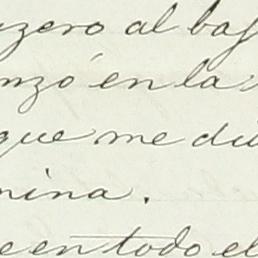 uzero al baj
nzó en la
que me di
mina.
e en todo el